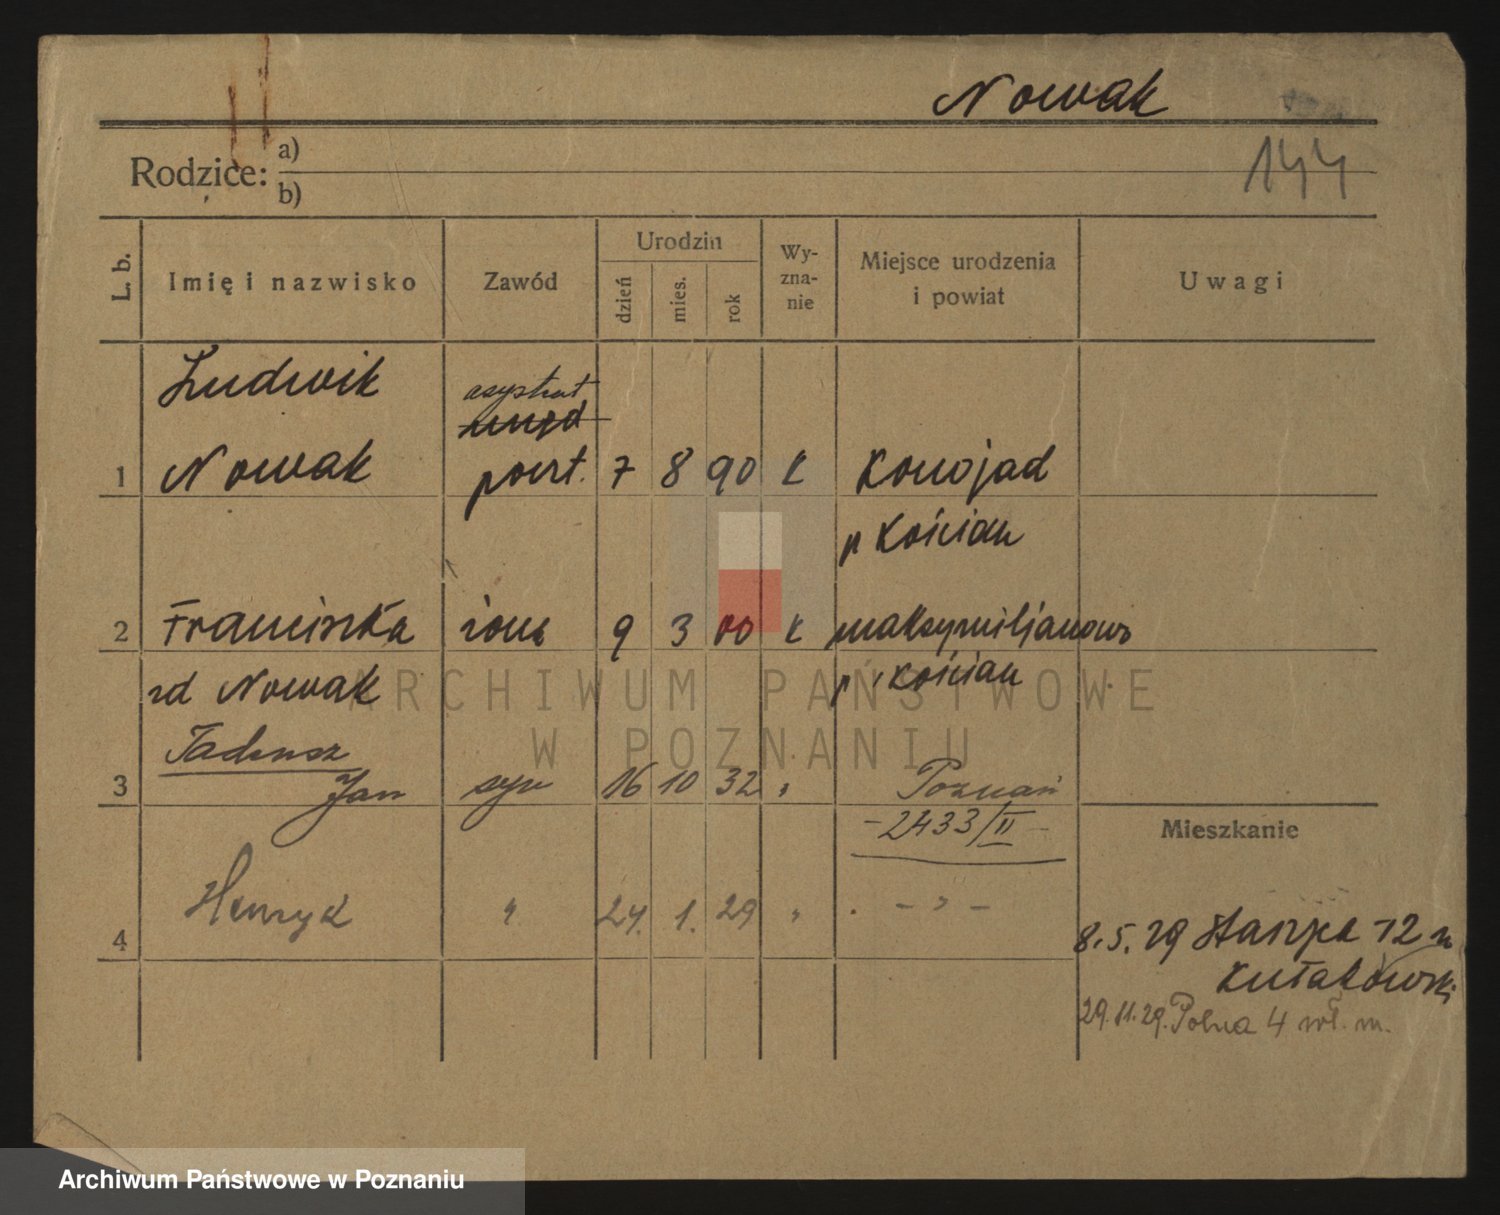 Nowak
144
Rodzice: a)
b)
L. b.
Imię i nazwisko
Zawód
Urodzin
dzień
mies.
rok
Wy-
zna-
nie
Miejsce urodzenia
i powiat
Uwagi
Ludwik
asystent
urzęd
1 Nowak poczt. 7 8 90 k Konojad
p Kościan
2 Franciszka żona 9 3 00 k Maksymiljanowo
zd Nowak p Kościan
Tadeusz
3 Jan syn 16 10 32 " Poznań
-2433/II-
Mieszkanie
4 Henryk " 24. 1. 29 " - " -
8.5.29 12 u
Kułakowski
29.11.29. Polna 4 wł. m.
ARCHIWUM PAŃSTWOWE
W POZNANIU
Archiwum Państwowe w Poznaniu